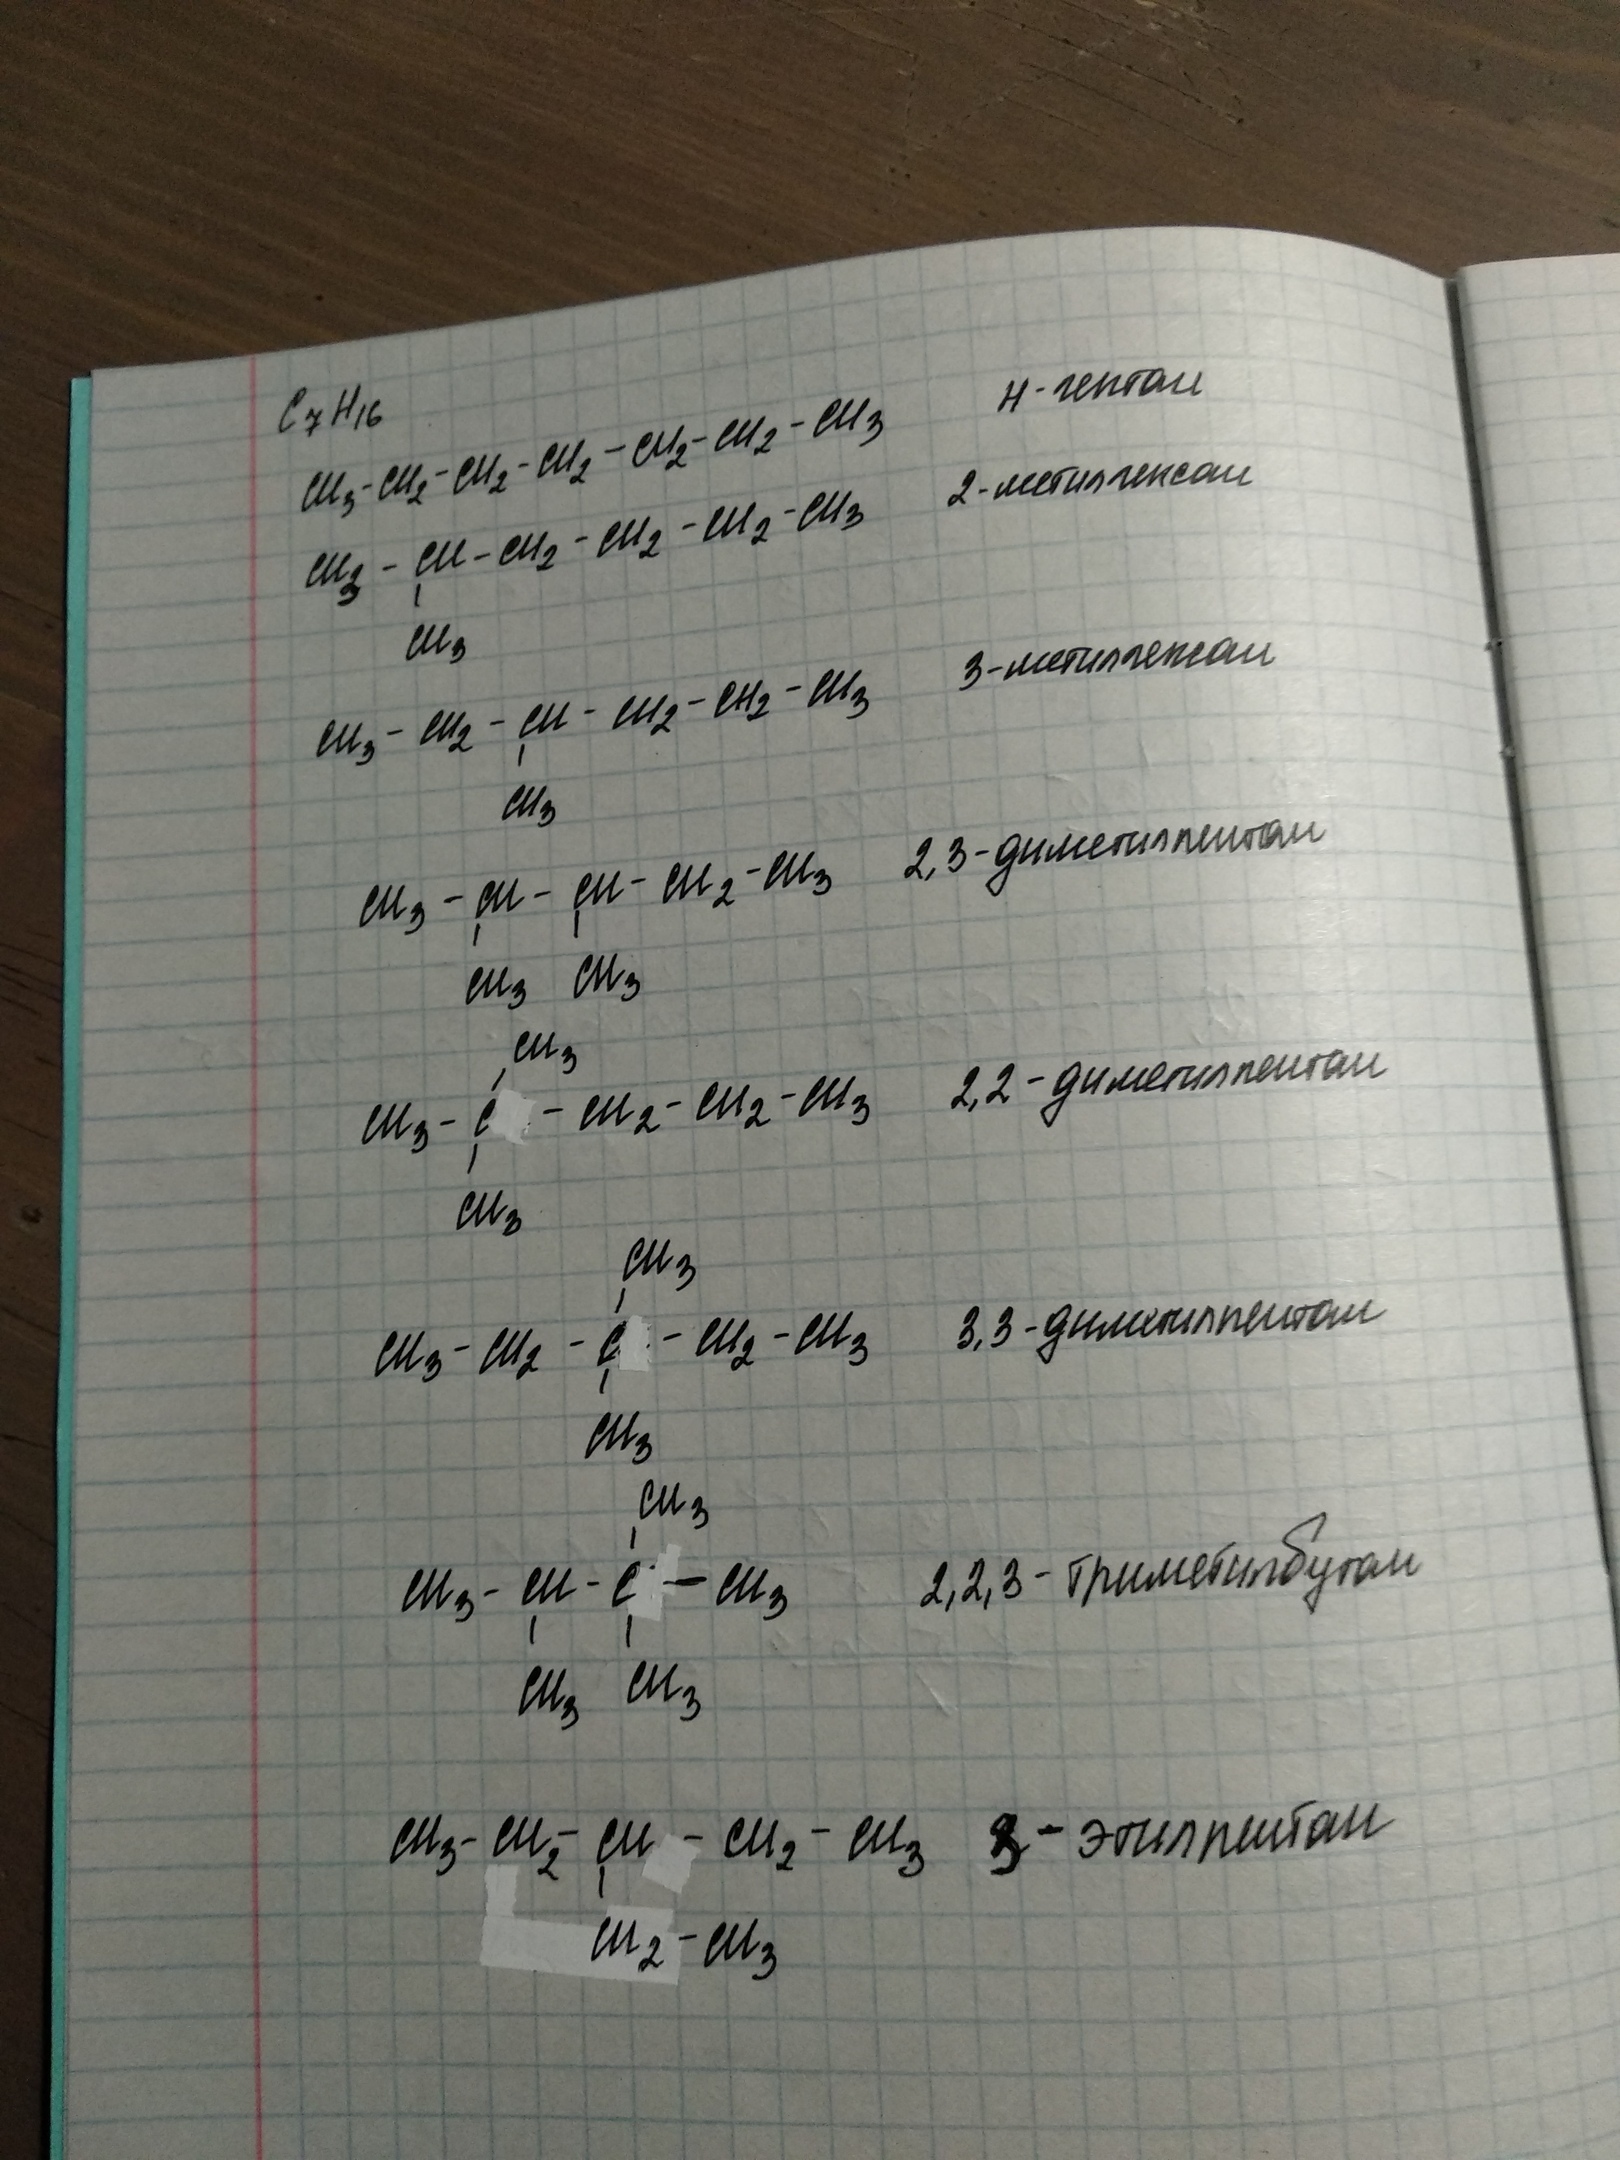 C7H16
CH3-CH2-CH2-CH2-CH2-CH2-CH3 н-гептан
CH3-CH-CH2-CH2-CH2-CH3 2-метилгексан
CH3
CH3-CH2-CH-CH2-CH2-CH3 3-метилгексан
CH3
CH3-CH-CH-CH2-CH3 2,3-диметилпентан
CH3 CH3
CH3
CH3-C-CH2-CH2-CH3 2,2-диметилпентан
CH3
CH3
CH3-CH2-C-CH2-CH3 3,3-диметилпентан
CH3
CH3
CH3-CH-C-CH3 2,2,3-триметилбутан
CH3 CH3
CH3-CH2-CH-CH2-CH3 3-этилпентан
CH2-CH3